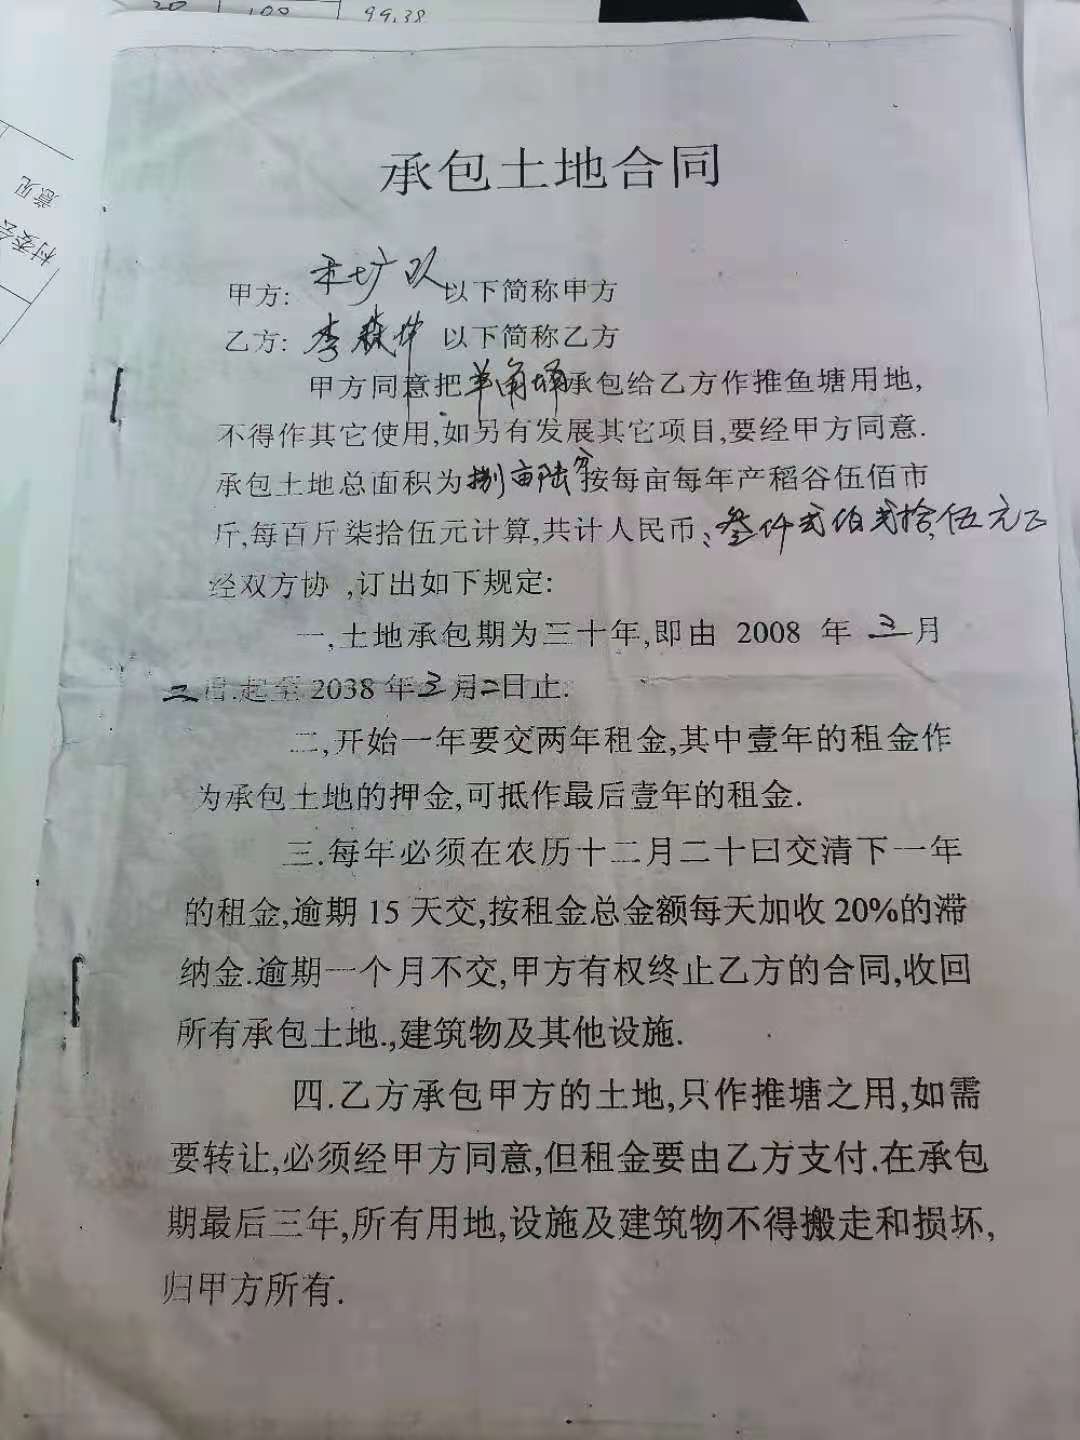 20 100 99.38
村委会
意见
承包土地合同
甲方: 禾圹队 以下简称甲方
乙方: 李森坤 以下简称乙方
甲方同意把羊角埇承包给乙方作推鱼塘用地,
不得作其它使用,如另有发展其它项目,要经甲方同意.
承包土地总面积为捌亩陆分按每亩每年产稻谷伍佰市
斤,每百斤柒拾伍元计算,共计人民币:叁仟贰佰贰拾伍元正
经双方协 ,订出如下规定:
一,土地承包期为三十年,即由 2008 年 三月
二日.起至 2038 年三月二日止.
二,开始一年要交两年租金,其中壹年的租金作
为承包土地的押金,可抵作最后壹年的租金.
三.每年必须在农历十二月二十曰交清下一年
的租金,逾期 15 天交,按租金总金额每天加收 20%的滞
纳金.逾期一个月不交,甲方有权终止乙方的合同,收回
所有承包土地.,建筑物及其他设施.
四.乙方承包甲方的土地,只作推塘之用,如需
要转让,必须经甲方同意,但租金要由乙方支付.在承包
期最后三年,所有用地,设施及建筑物不得搬走和损坏,
归甲方所有.